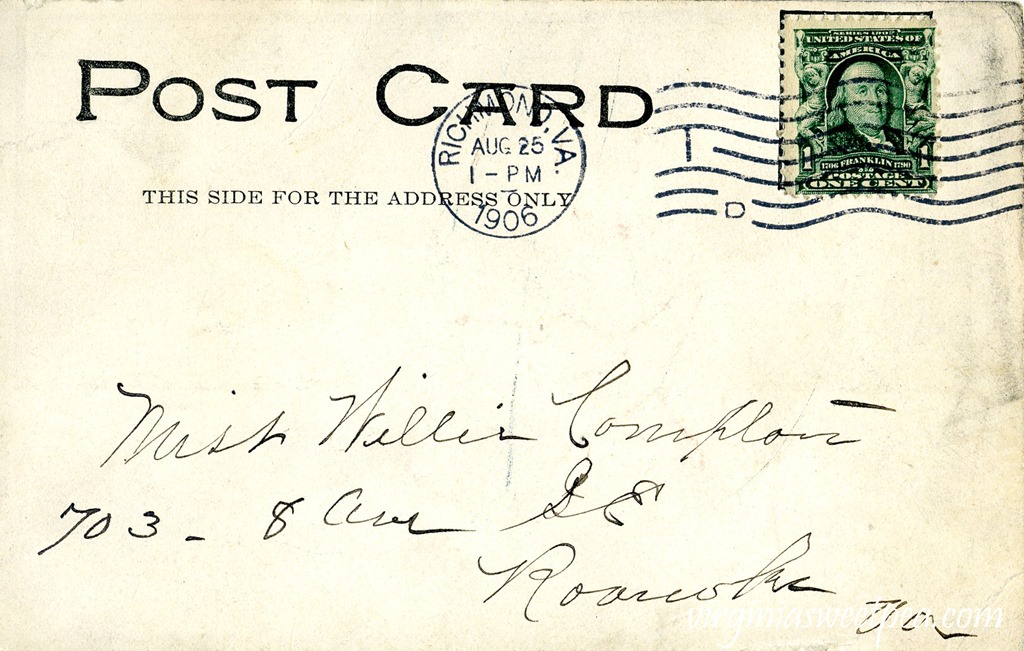 POST CARD
THIS SIDE FOR THE ADDRESS ONLY
RICHMOND, VA.
AUG 25
1 - PM
1906
D
SERIES 1902
UNITED STATES OF
AMERICA
1706 FRANKLIN 1790
1 1
POSTAGE
ONE CENT
Miss Willie Compton
703 - 8 Ave S E
Roanoke
Va
virginiasweetpea.com